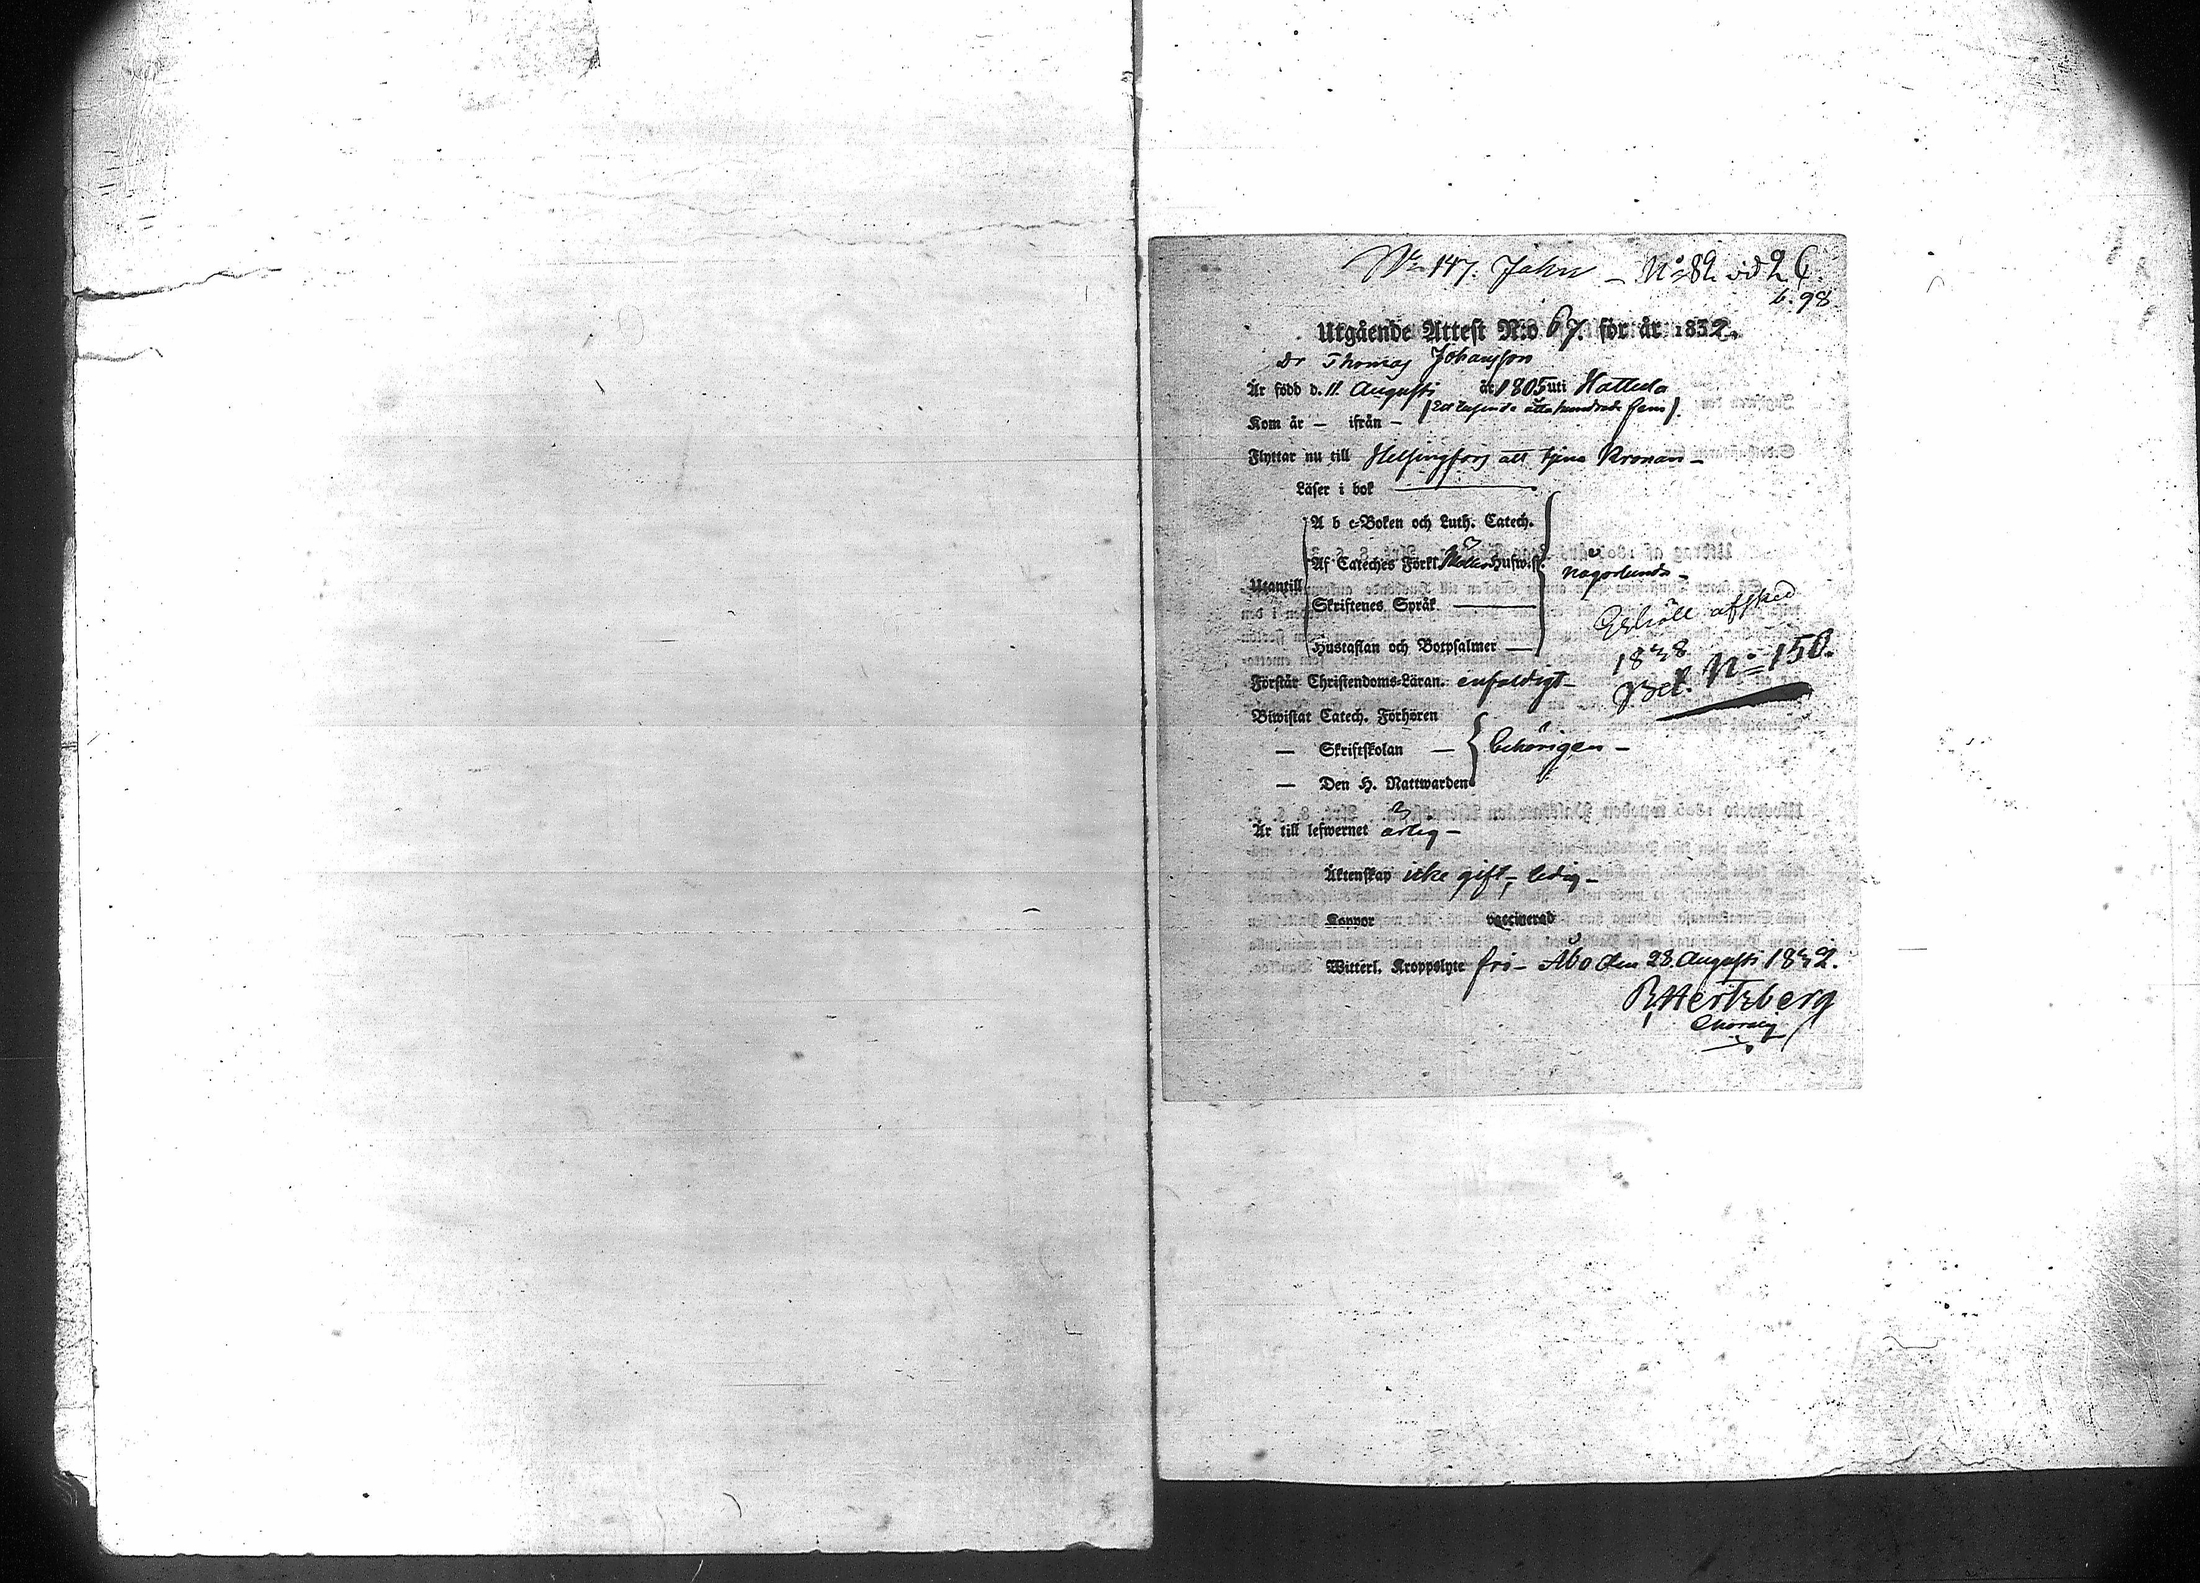 No 147. Jahn — No 82 vid 2 C.
b. 98
Utgående Attest N:o 67. för år 1832.
Dr Thomas Johansson
Är född d. 11 Augusti år 1805 uti Hattula
(Ett tusende åttahundrade fem).
Kom år — ifrån —
Flyttar nu till Helsingfors att tjena Kronan —
Läser i bok
A b c-Boken och Luth. Catech.
Af Cateches Förkl. Huswifl.
någorlunda —
Utantill
Skriftenes Språk
Erhöll afsked
1838
Hustaflan och Botpsalmer
Bet. No 150.
Förstår Christendoms-Läran. enfaldigt —
Biwistat Catech. Förhören
— Skriftskolan — behörigen —
— Den H. Nattwarden
Är till lefwernet ärlig —
Äktenskap icke gift, ledig —
Koppor vaccinerad
Witterl. Kroppslyte fri — Åbo den 28 Augusti 1832.
Hertzberg